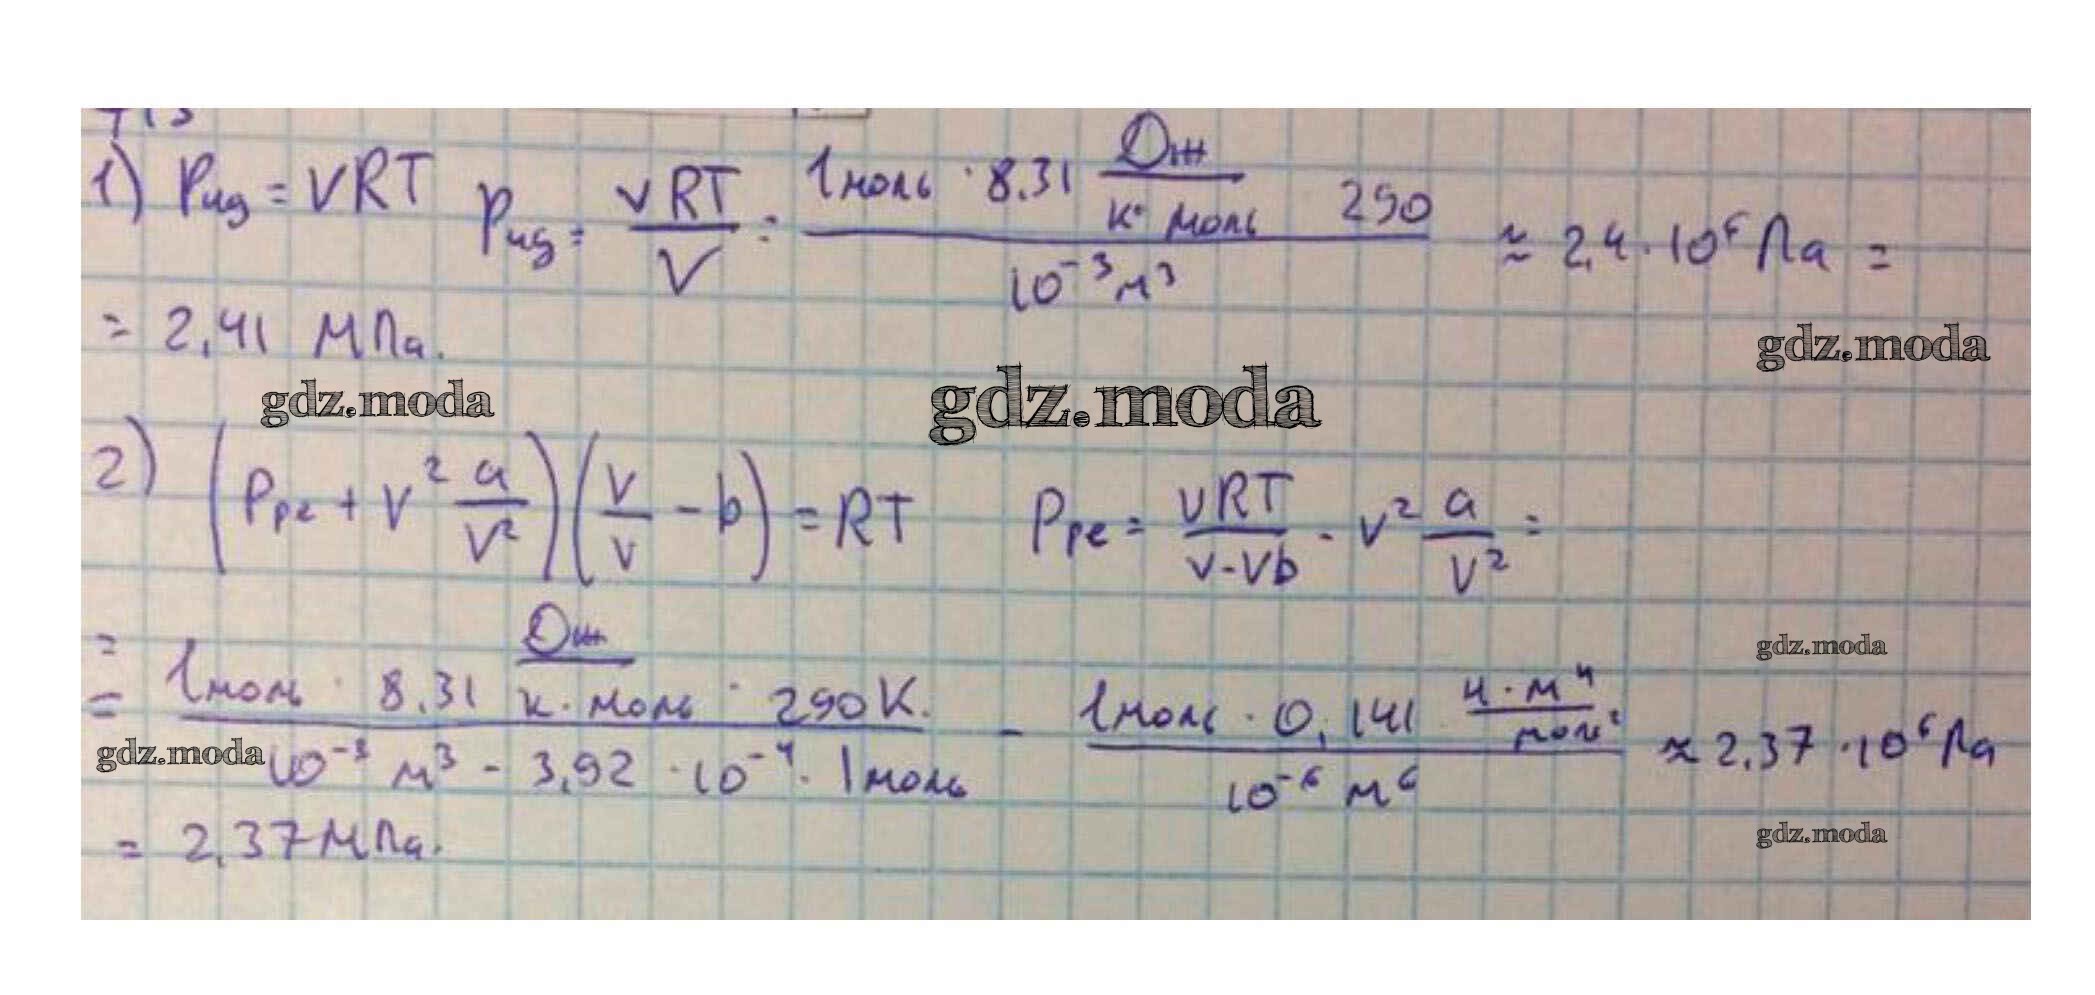 1) Pид = νRT Pид = νRT/V = 1моль · 8.31 Дж/К·моль 290 / 10⁻³м³ ≈ 2,4·10⁶ Па =
= 2,41 МПа.
gdz.moda
gdz.moda
gdz.moda
2) (Pре + ν² a/V²)(V/ν - b) = RT Pре = νRT/V-νb - ν² a/V² =
= 1моль · 8,31 Дж/К·моль · 290К. / 10⁻³ м³ - 3,92·10⁻⁴·1моль - 1моль · 0,141 Н·м⁴/моль² / 10⁻⁶ м⁶ ≈ 2,37·10⁶Па
gdz.moda
gdz.moda
= 2,37МПа.
gdz.moda